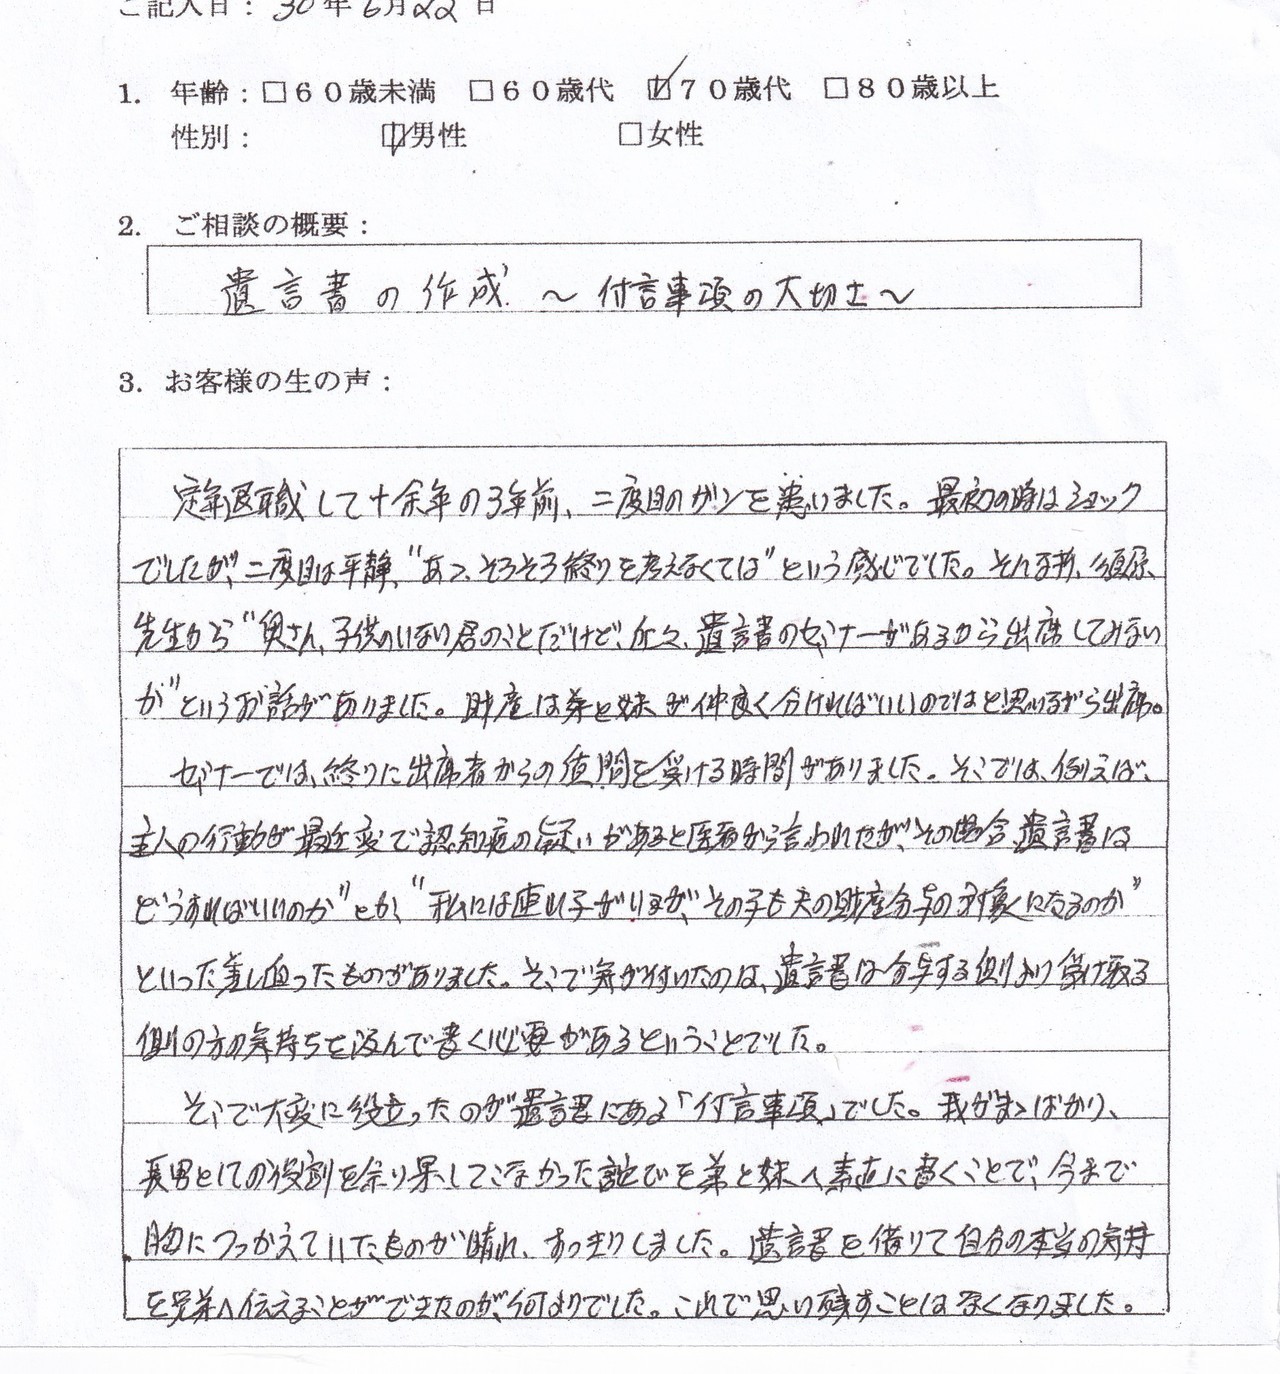 ご記入日： 30 年 6月 22 日
1. 年齢：□６０歳未満 □６０歳代 ☑７０歳代 □８０歳以上
性別： ☑男性 □女性
2. ご相談の概要：
遺言書の作成 ～付言事項の大切さ～
3. お客様の生の声：
定年退職して十余年の3年前、二度目のガンを患いました。最初の時はショック
でしたが、二度目は平静、"あゝ、そろそろ終りを考えなくては"という感じでした。そんな折、須原
先生から"奥さん、子供のいない君のことだけど、近々、遺言書のセミナーがあるから出席してみない
か"というお話がありました。財産は弟と妹が仲良く分ければいいのではと思いながら出席。
セミナーでは、終りに出席者からの質問を受ける時間がありました。そこでは、例えば、
主人の行動が最近変で認知症の疑いがあると医者から言われたが、その場合、遺言書は
どうすればいいのか"とか、"私には連れ子がいるが、その子も夫の財産分与の対象になるのか"
といった差し迫ったものがありました。そこで気が付いたのは、遺言書は分与する側より受け取る
側の方の気持ちを汲んで書く必要があるということでした。
そこで大変に役立ったのが遺言書にある「付言事項」でした。我がまゝばかり、
長男としての役割を余り果してこなかった詫びを弟と妹へ素直に書くことで、今まで
胸につっかえていたものが晴れ、すっきりしました。遺言書を借りて自分の本当の気持
を兄弟へ伝えることができたのが、何よりでした。これで思い残すことはなくなりました。